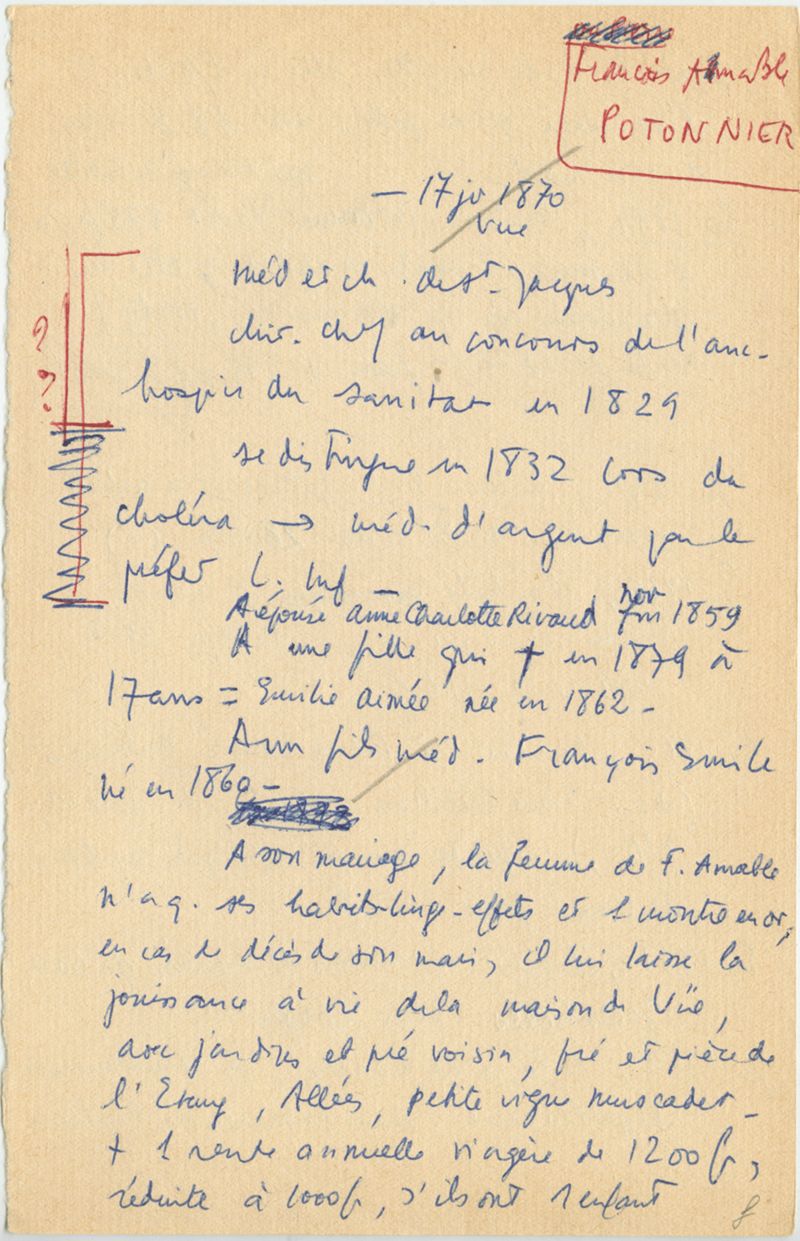 François Amable
POTONNIER
— 17 jv 1870
Vue
Méd et ch. de St-Jacques
chir. chef au concours de l'anc-
hospice du sanitat en 1829
se distingue en 1832 lors du
choléra → méd. d'argent par le
préfet L. Inf
A épousé Anne Charlotte Rivaud nov 1859
A une fille qui † en 1879 à
17 ans = Emilie Aimée née en 1862 -
A un fils méd. François Emile
né en 1860 -
A son mariage, la femme de F. Amable
n'a q. ses habits-linge-effets et 1 montre en or,
en cas de décès de son mari, il lui laisse la
jouissance à vie de la maison de Vüe,
avec jardins et pré voisin, pré et pièce de
l'Etang, Allées, petite vigne muscadet -
+ 1 rente annuelle viagère de 1200 fr,
réduite à 1000 fr, s'ils ont 1 enfant
? ?